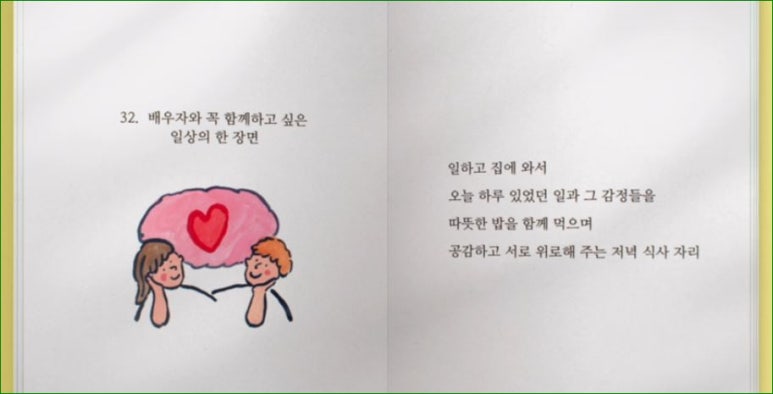 32. 배우자와 꼭 함께하고 싶은
일상의 한 장면
일하고 집에 와서
오늘 하루 있었던 일과 그 감정들을
따뜻한 밥을 함께 먹으며
공감하고 서로 위로해 주는 저녁 식사 자리